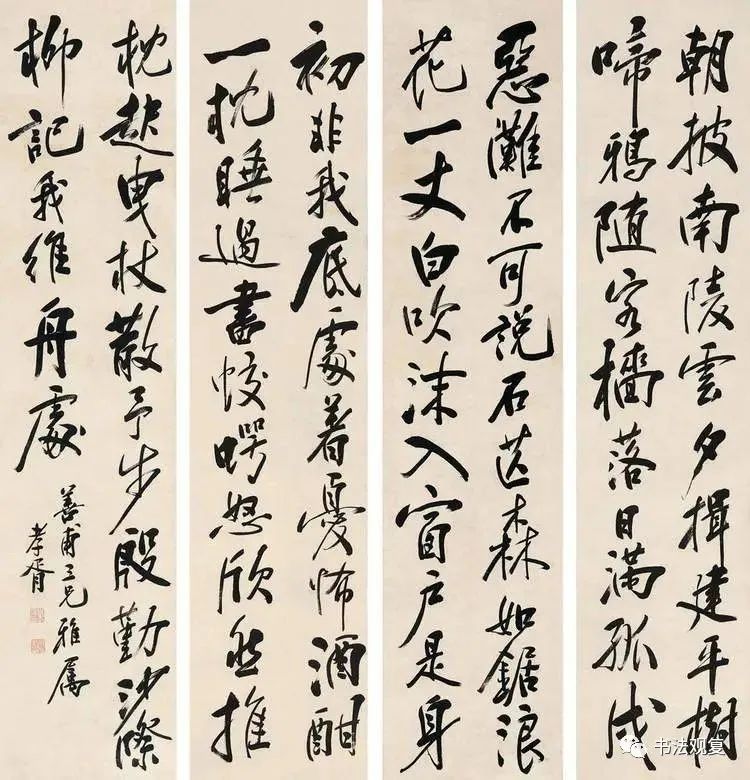 朝披南陵雲夕揖建平樹
啼鴉隨客檣落日滿孤戍
惡灘不可説石芒森如鋸浪
花一丈白吹沫入窗户是身
初非我底處着憂怖酒酣
一枕睡過盡蛟鰐怒欣然推
枕起曳杖散予步殷勤沙際
柳記我維舟處
善甫三兄雅屬
孝胥
书法观复